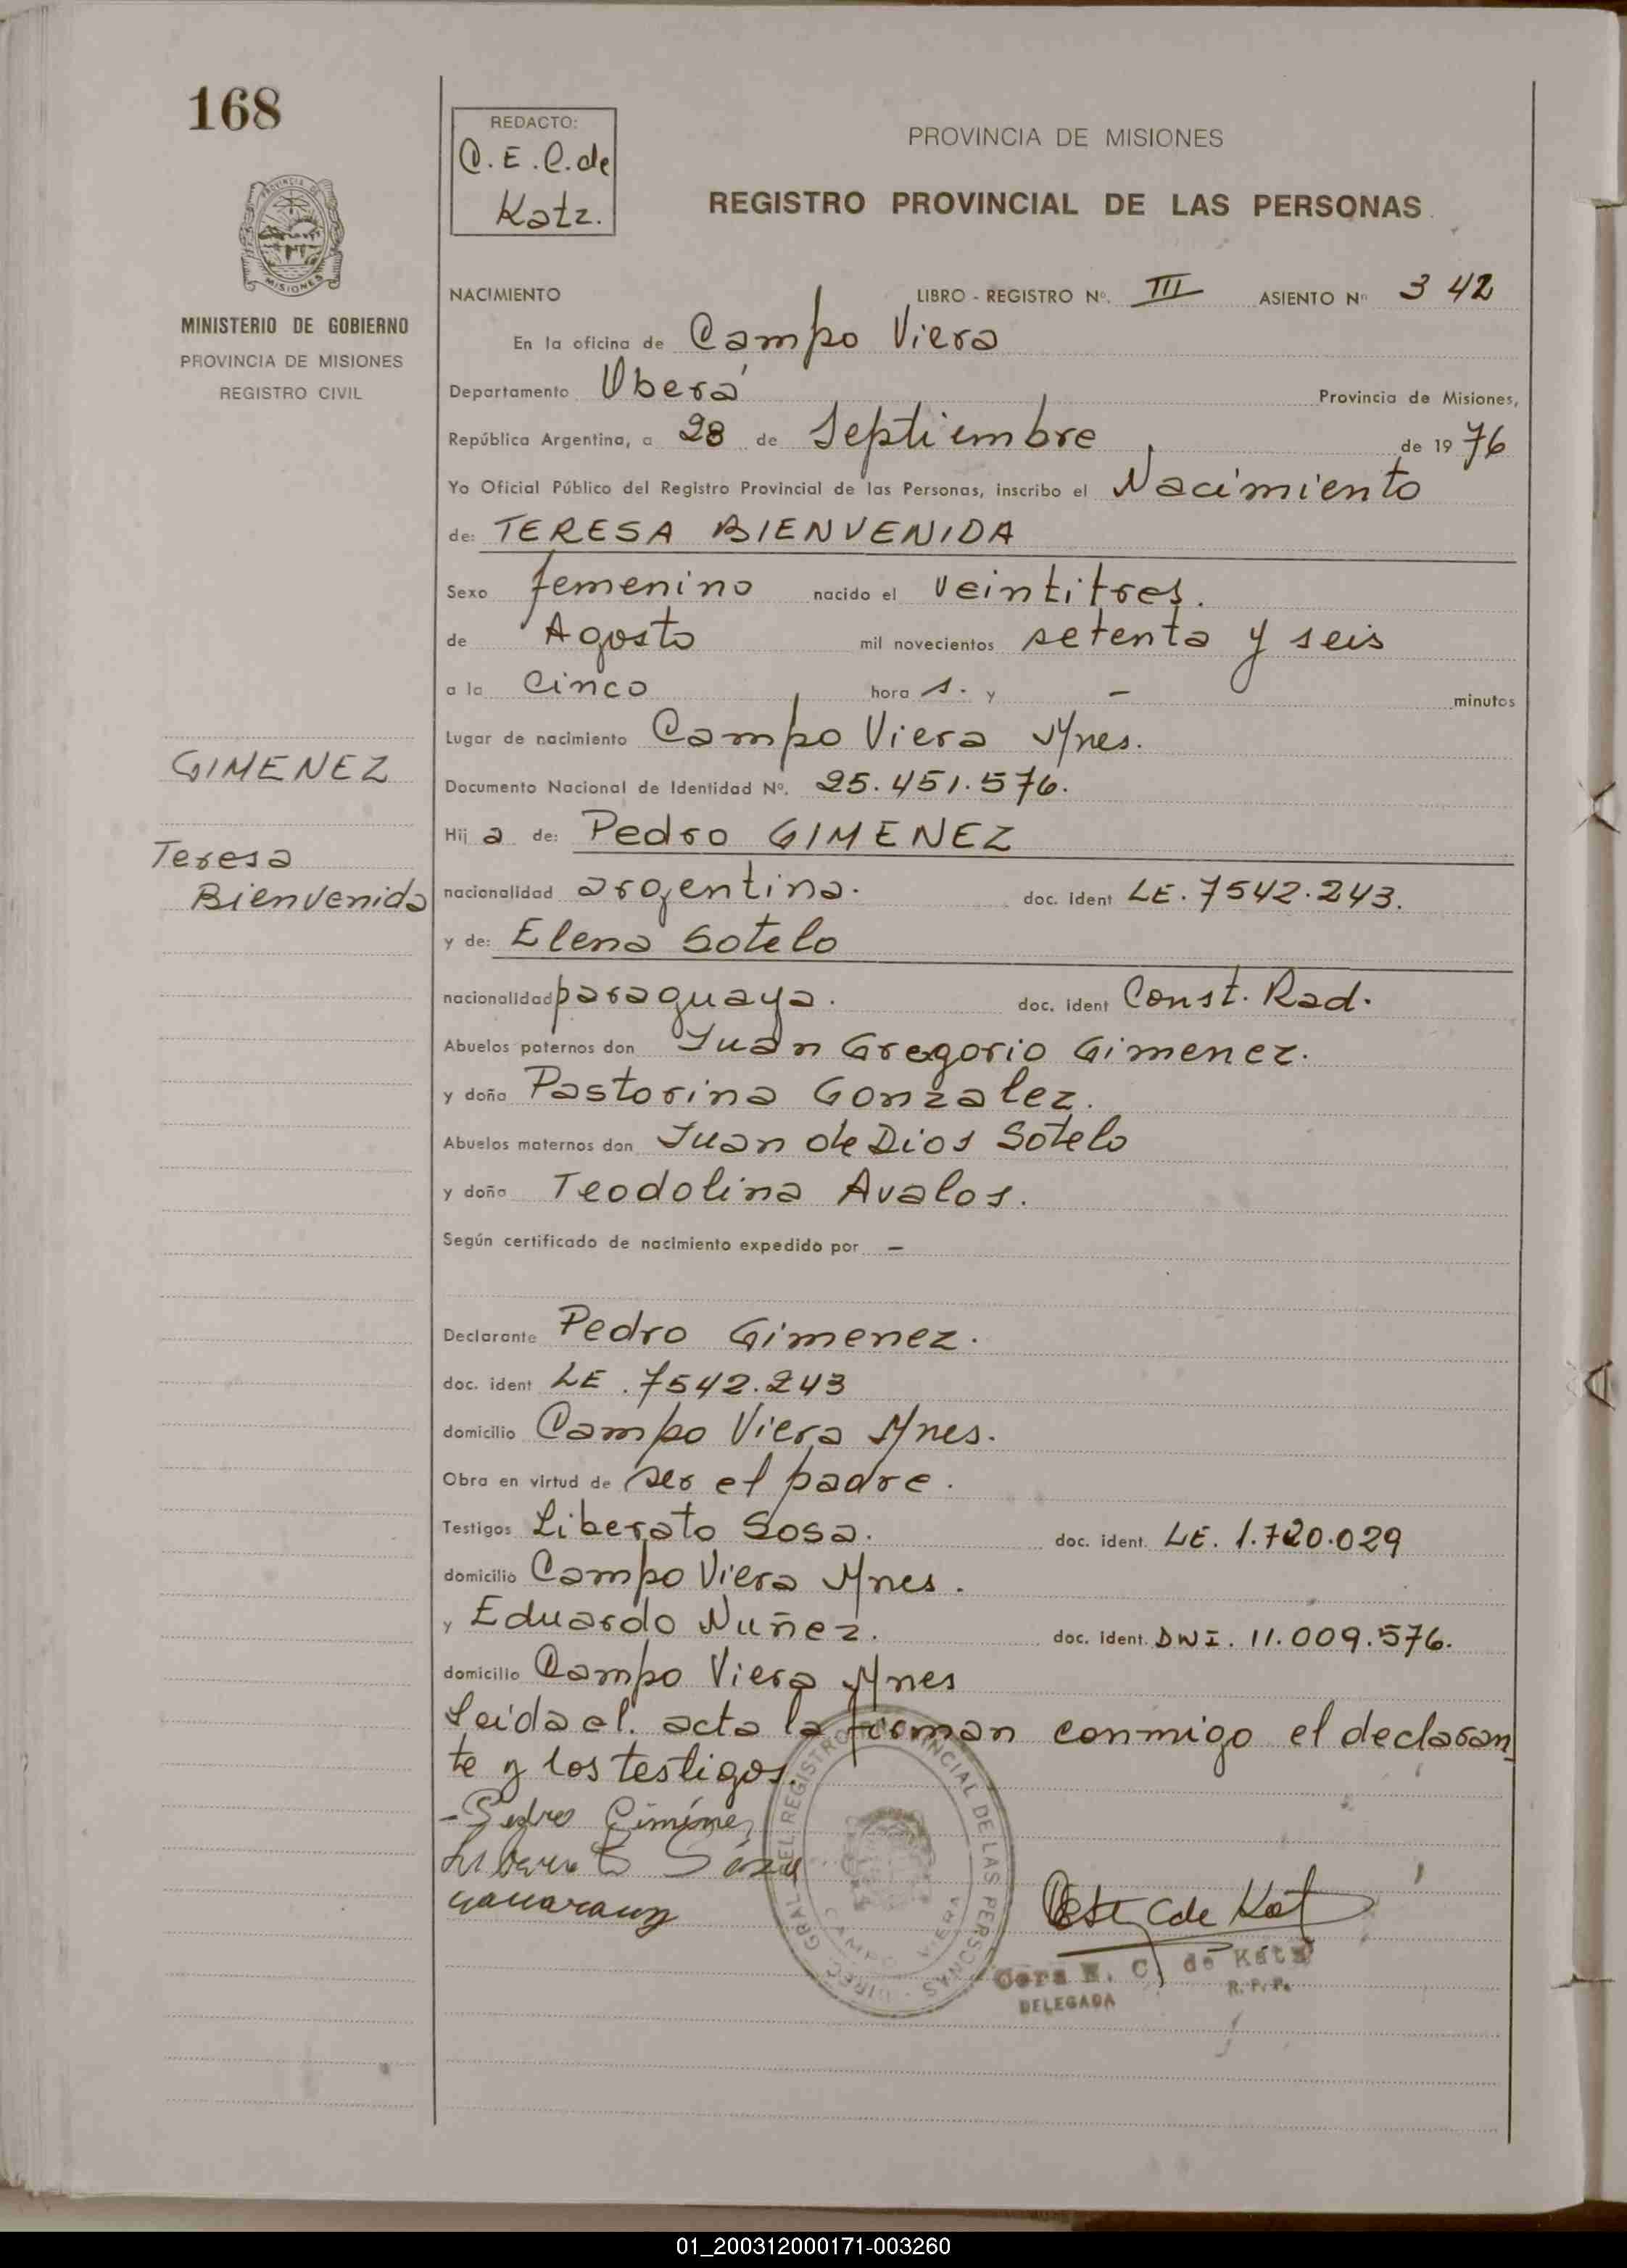 168
REDACTO:
C.E.C. de
Katz.
PROVINCIA DE MISIONES
REGISTRO PROVINCIAL DE LAS PERSONAS
PROVINCIA DE
MISIONES
MINISTERIO DE GOBIERNO
PROVINCIA DE MISIONES
REGISTRO CIVIL
NACIMIENTO LIBRO - REGISTRO Nº. III ASIENTO Nº 342
En la oficina de Campo Viera
Departamento Oberá Provincia de Misiones,
República Argentina, a 28 de Septiembre de 1976
Yo Oficial Público del Registro Provincial de las Personas, inscribo el Nacimiento
de: TERESA BIENVENIDA
Sexo femenino nacido el veintitres.
de Agosto mil novecientos setenta y seis
a la cinco hora s. y - minutos
Lugar de nacimiento Campo Viera Mnes.
GIMENEZ
Documento Nacional de Identidad Nº. 25.451.576.
Hija de: Pedro GIMENEZ
Teresa
Bienvenida
nacionalidad argentina. doc. ident LE. 7542.243.
y de: Elena Sotelo
nacionalidad paraguaya. doc. ident Const. Rad.
Abuelos paternos don Juan Gregorio Gimenez.
y doña Pastorina Gonzalez.
Abuelos maternos don Juan de Dios Sotelo
y doña Teodolina Avalos.
Según certificado de nacimiento expedido por -
Declarante Pedro Gimenez.
doc. ident LE. 7542.243
domicilio Campo Viera Mnes.
Obra en virtud de ser el padre.
Testigos Liberato Sosa. doc. ident. LE. 1.720.029
domicilio Campo Viera Mnes.
y Eduardo Nuñez. doc. ident. DNI. 11.009.576.
domicilio Campo Viera Mnes
Leida el. acta la firman conmigo el declaran
te y los testigos.
- Pedro Giménez
Liberato Sosa
DIREC. GRAL. DEL REGISTRO PROVINCIAL DE LAS PERSONAS
CAMPO VIERA
C de Katz
E. C. de Katz
DELEGADA R.P.P.
01_200312000171-003260